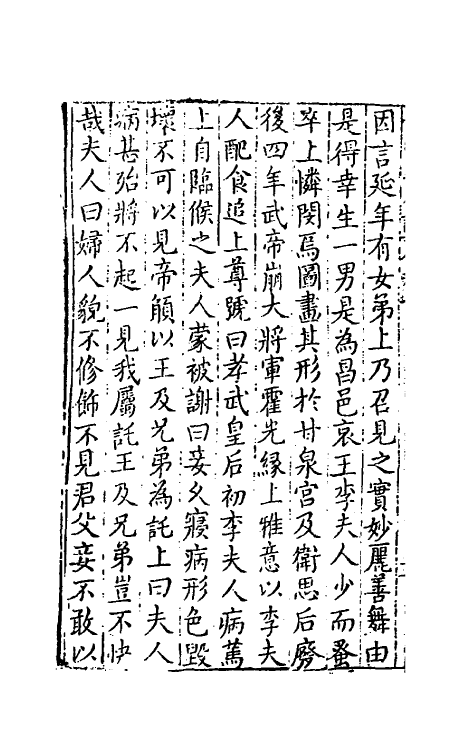 因言延年有女弟上乃召見之實妙麗善舞由
是得幸生一男是為昌邑哀王李夫人少而蚤
卒上憐閔焉圖畫其形於甘泉宮及衛思后廢
後四年武帝崩大將軍霍光緣上雅意以李夫
人配食追上尊號曰孝武皇后初李夫人病篤
上自臨候之夫人蒙被謝曰妾久寢病形色毀
壞不可以見帝願以王及兄弟為託上曰夫人
病甚殆將不起一見我屬託王及兄弟豈不快
哉夫人曰婦人貌不修飾不見君父妾不敢以